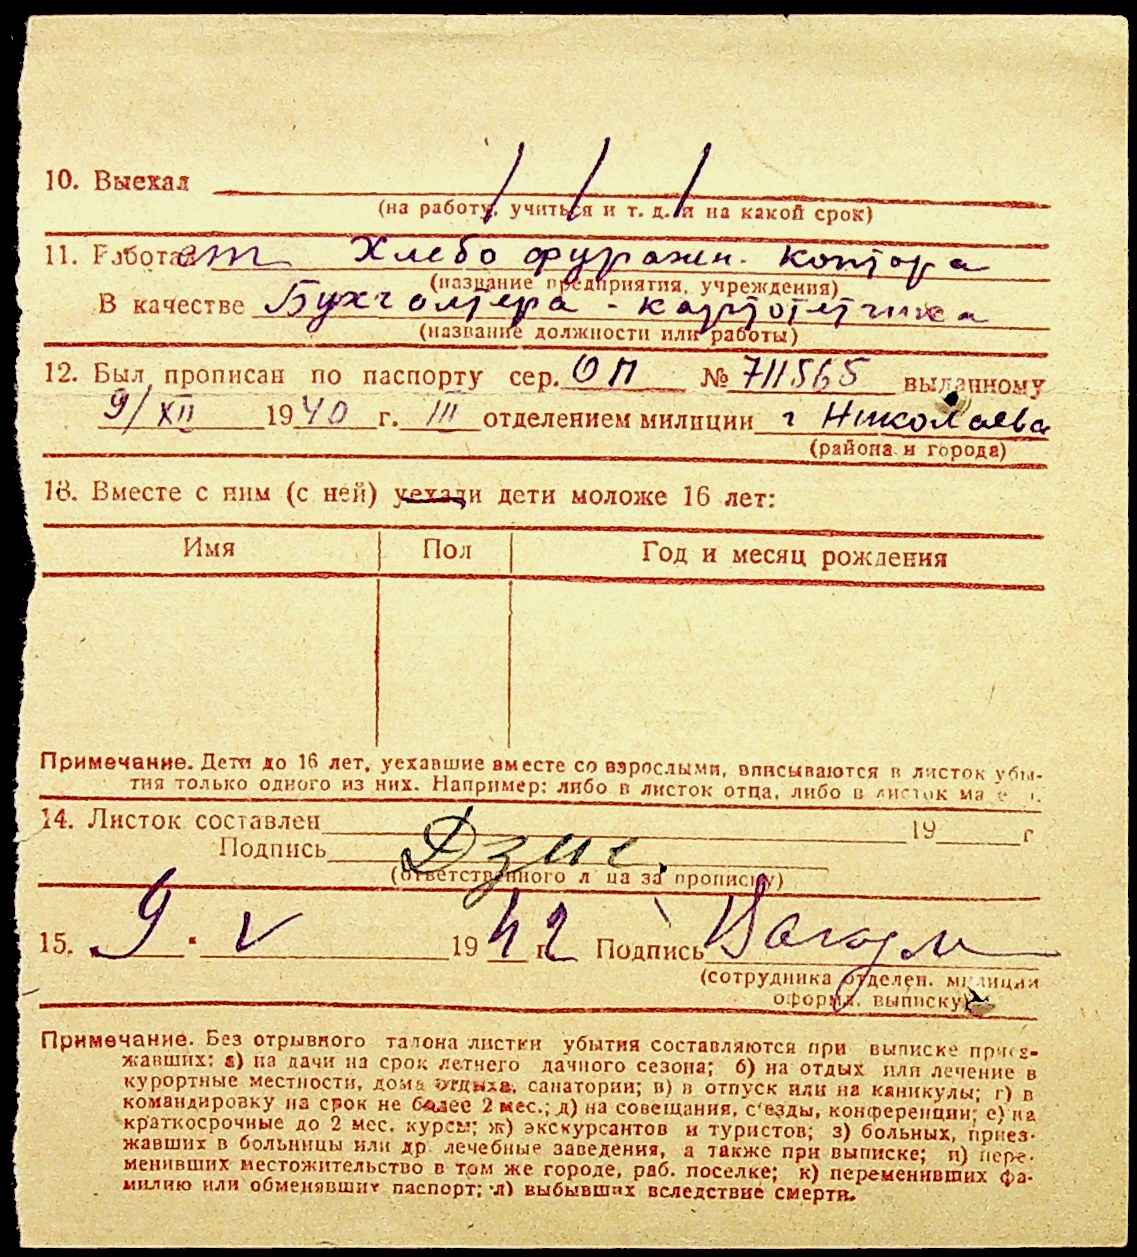 10. Выехал
(на работу, учиться и т. д. и на какой срок)
11. Работает Хлебо фуражн. контора
(название предприятия, учреждения)
В качестве Бухгалтера - картотетчика
(название должности или работы)
12. Был прописан по паспорту сер. ОП № 711565 выданному
9/XII 1940 г. III отделением милиции г Николаева
(района и города)
13. Вместе с ним (с ней) уехали дети моложе 16 лет:
Имя Пол Год и месяц рождения
Примечание. Дети до 16 лет, уехавшие вместе со взрослыми, вписываются в листок убы-
тия только одного из них. Например: либо в листок отца, либо в листок
14. Листок составлен 19 г
Подпись
(ответственного лица за прописку)
15. 9. V 1942 г. Подпись
(сотрудника отделен. милиции
оформ. выписку)
Примечание. Без отрывного талона листки убытия составляются при выписке приез-
жавших: а) на дачи на срок летнего дачного сезона; б) на отдых или лечение в
курортные местности, дома отдыха, санатории; в) в отпуск или на каникулы; г) в
командировку на срок не более 2 мес.; д) на совещания, с'езды, конференции; е) на
краткосрочные до 2 мес. курсы; ж) экскурсантов и туристов; з) больных, приез-
жавших в больницы или др. лечебные заведения, а также при выписке; и) пере-
менивших местожительство в том же городе, раб. поселке; к) переменивших фа-
милию или обменявших паспорт; л) выбывших вследствие смерти.